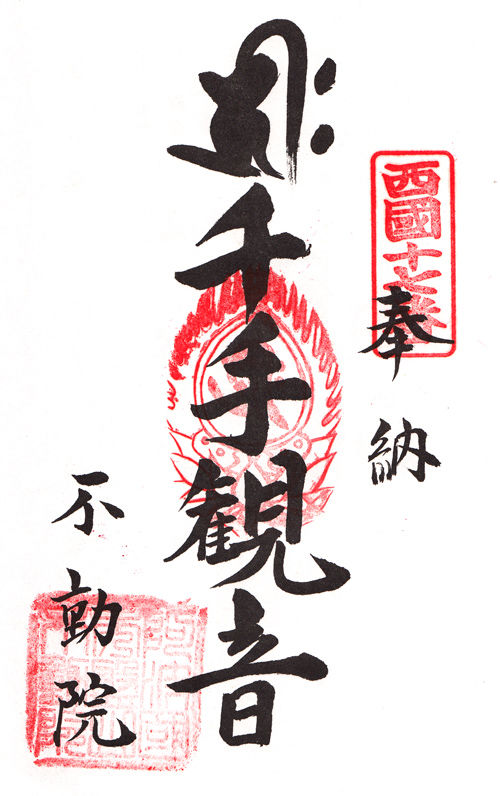 西國十七番
奉納
千手観音
不動院